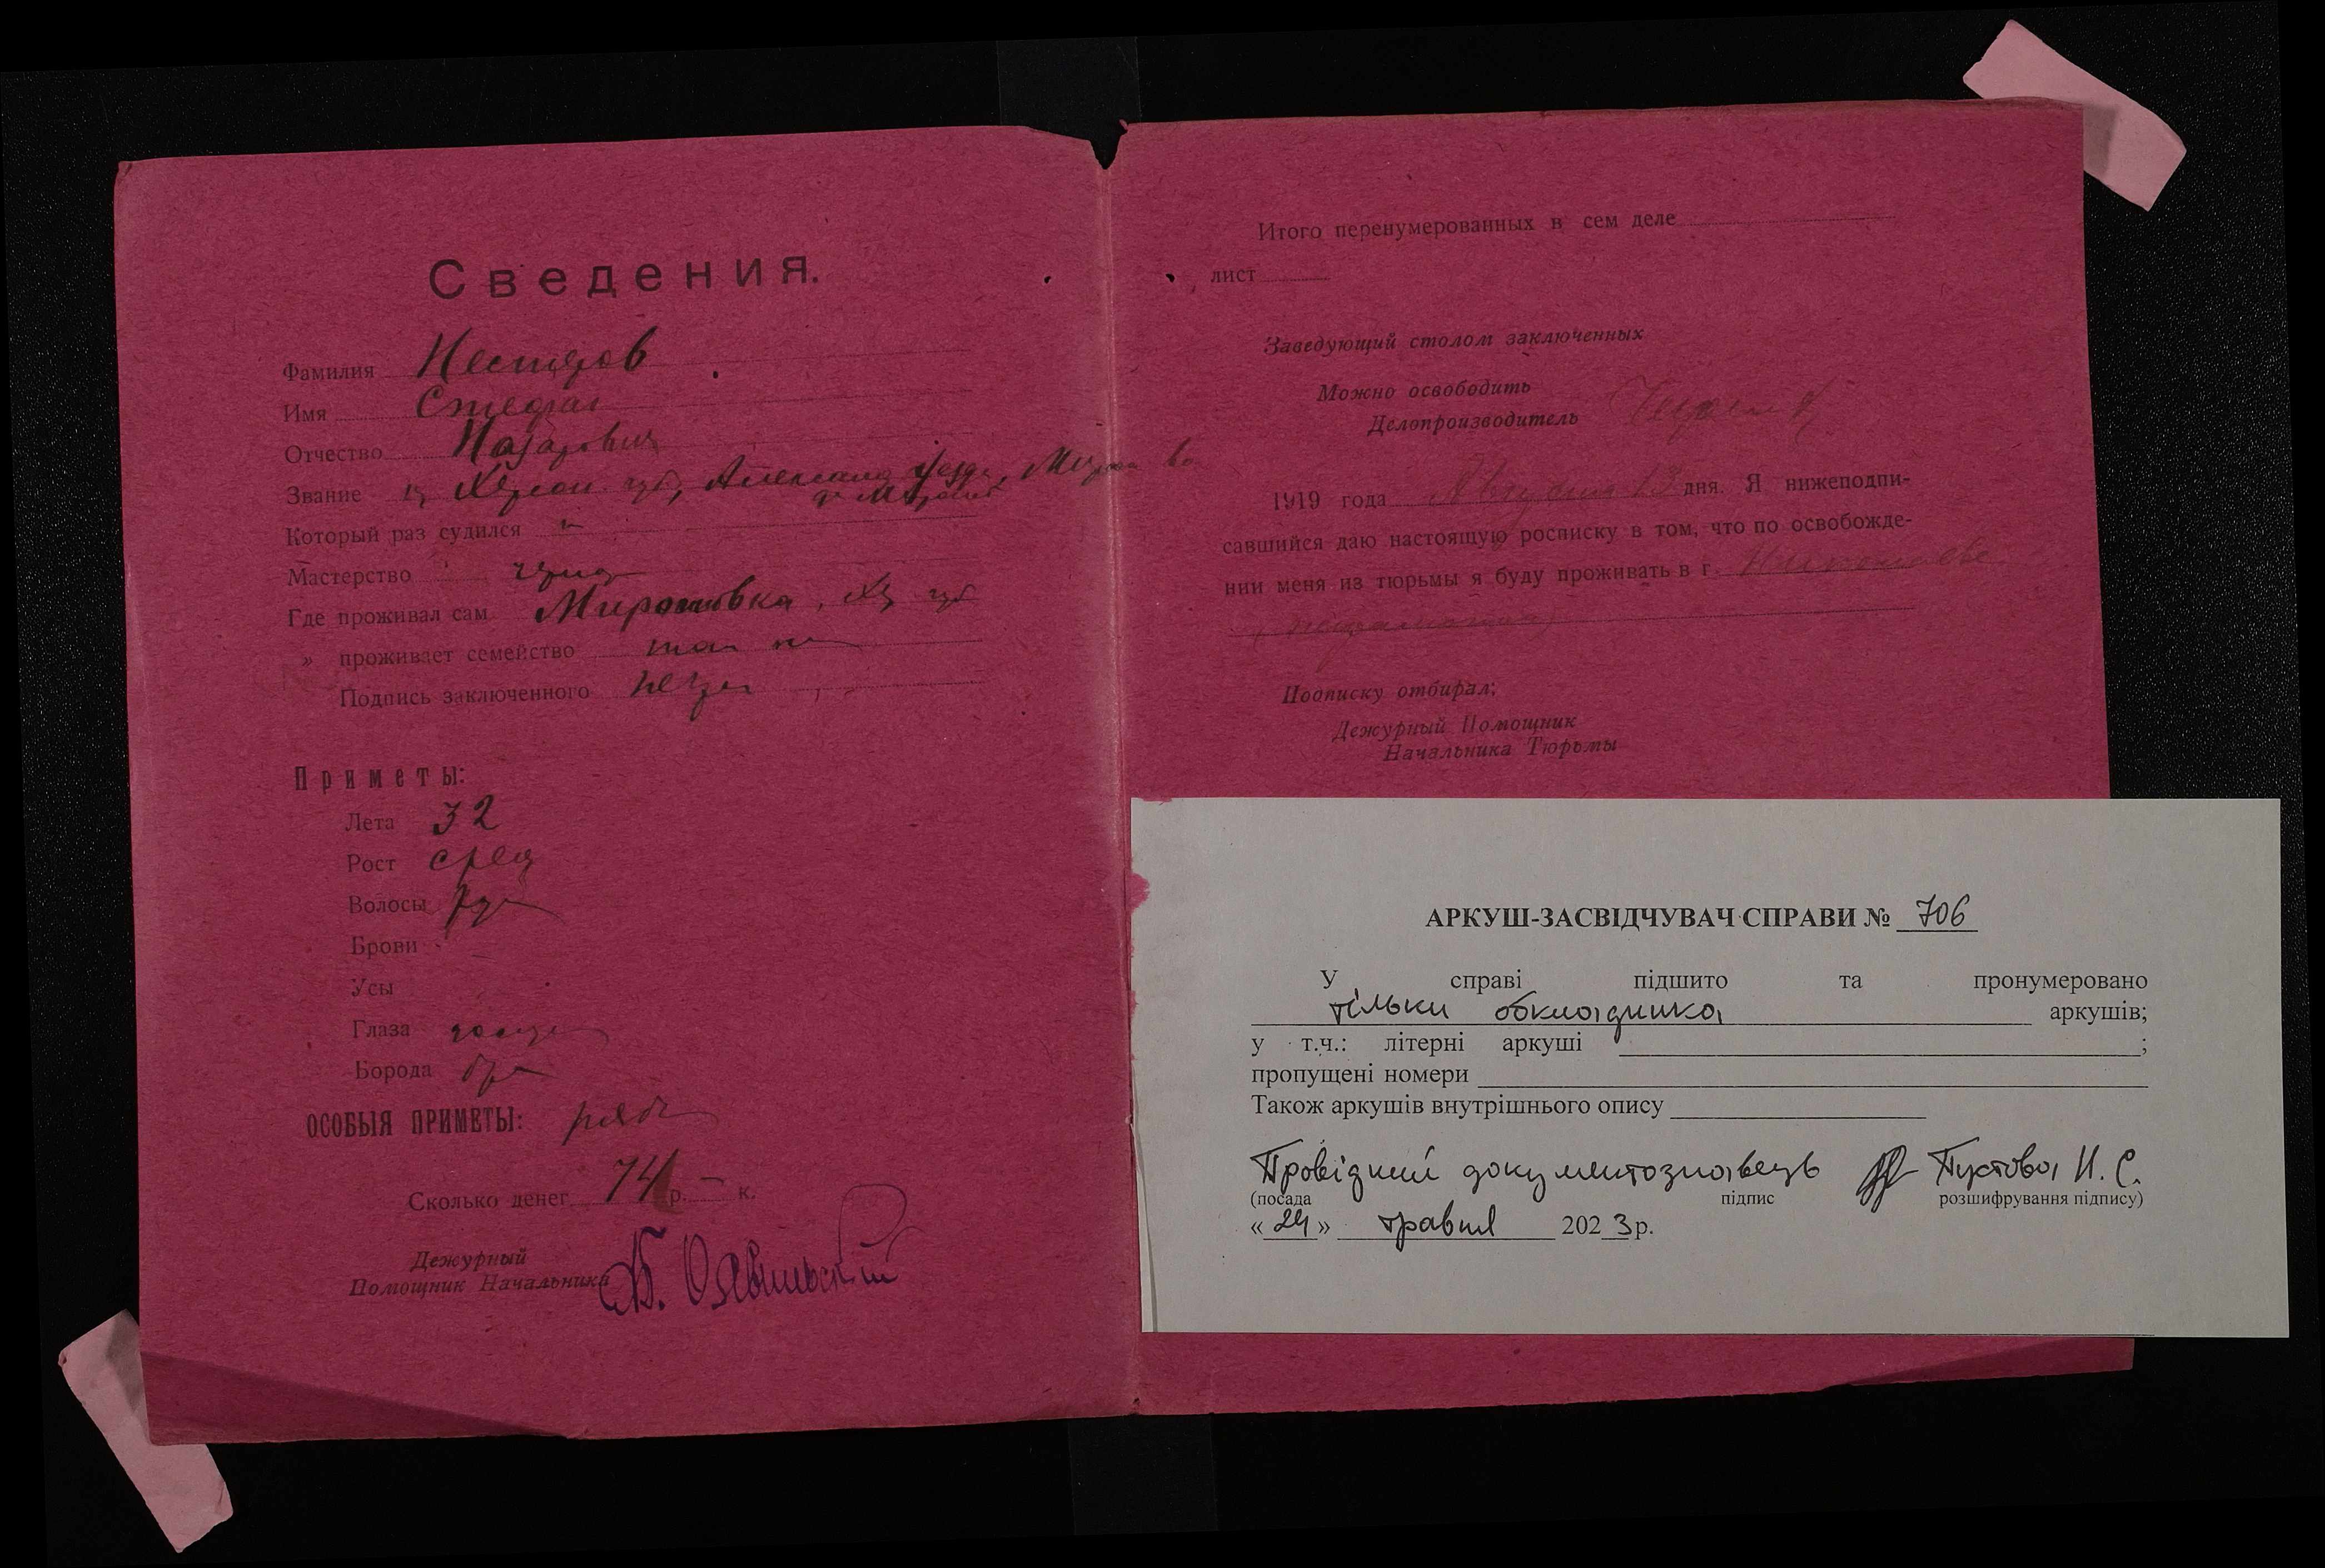 Сведения.
Фамилия Нестеров
Имя Стефан
Отчество Назарович
Звание кр. Херсон. губ, Александ уезда,
Который раз судился
Мастерство
Где проживал сам Мироновка, Хр губ
» проживает семейство там же
Подпись заключенного негр
Приметы:
Лета 32
Рост сред
Волосы рус
Брови
Усы
Глаза
Борода бр
ОСОБЫЯ ПРИМЕТЫ: рябой
Сколько денег 74 р. — к.
Дежурный
Помощник Начальника
Итого перенумерованных в сем деле
лист
Заведующий столом заключенных
Можно освободить
Делопроизводитель
1919 года Августа 13 дня. Я нижеподпи-
савшийся даю настоящую росписку в том, что по освобожде-
нии меня из тюрьмы я буду проживать в г. Николаеве
Поописку отбирал;
Дежурный Помощник
Начальника Тюрьмы
АРКУШ-ЗАСВІДЧУВАЧ СПРАВИ № 706
У справі підшито та пронумеровано
тільки обкладинка аркушів;
у т.ч.: літерні аркуші ;
пропущені номери
Також аркушів внутрішнього опису
Провідний документознавець Пустова И. С.
(посада підпис розшифрування підпису)
« 24 » травня 2023 р.